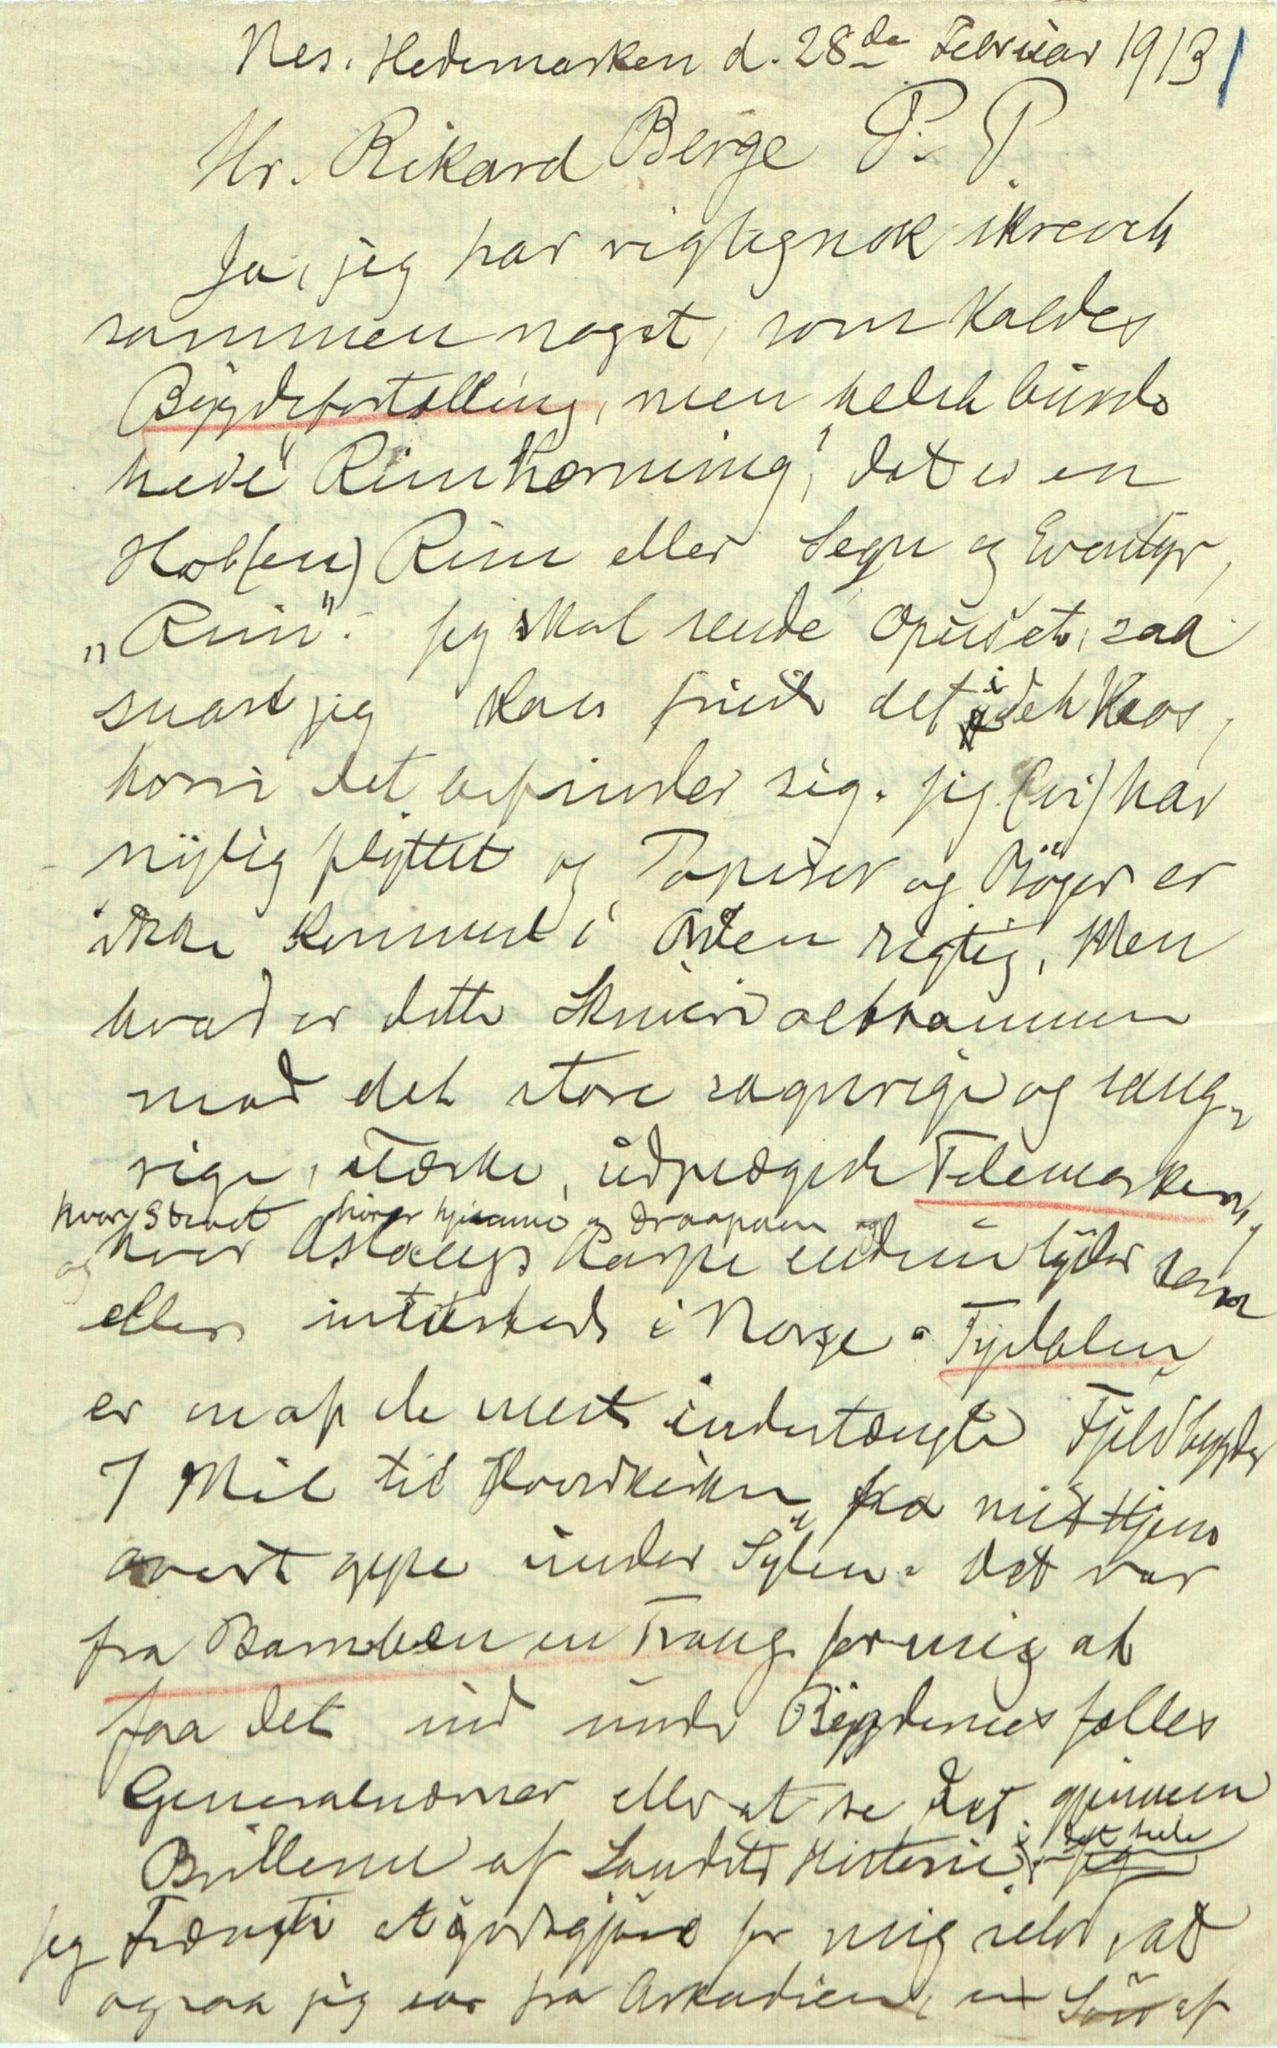 Nes. Hedemarken d. 28de Februar 1913
Hr. Rikard Berge P. P.
Ja, jeg har rigtignok skrevet
sammen noget, som kaldes
Bygdefortælling, men helst burde
hede "Rimhorning", det er en
Hob(en) Rim eller Segn og Eventyr,
„Rim". Jeg skal sende Opuset, saa
snart jeg kan finde det i det Kaos,
hvori det befinder sig. Jeg (vi) har
nylig flyttet og Papirer og Bøger er
ikke kommet i Orden rigtig. Men
hvad er dette Skriveri altsammen
mod det store sagnrige og sang-
rige, stærke, udprægede Telemarken,
hvor Stevet hører hjemme og Draapaen og
og hvor Aslaugs Harpe endnu lyder som
ellers intetsteds i Norge. Tydalen
er en af de mest indestængte Fjeldbygder
7 Mil til Hovedkirken fra mit Hjem
øverst oppe under Sylen. Det var
fra Barnben en Trang for mig at
faa det ind under Bygdernes fælles
Generalnævner eller at se det gjennem
Brillerne af Landets Historie, det hele
Jeg trængte at godtgjøre for mig selv, at
ogsaa jeg var fra Arkadien, en Søn af